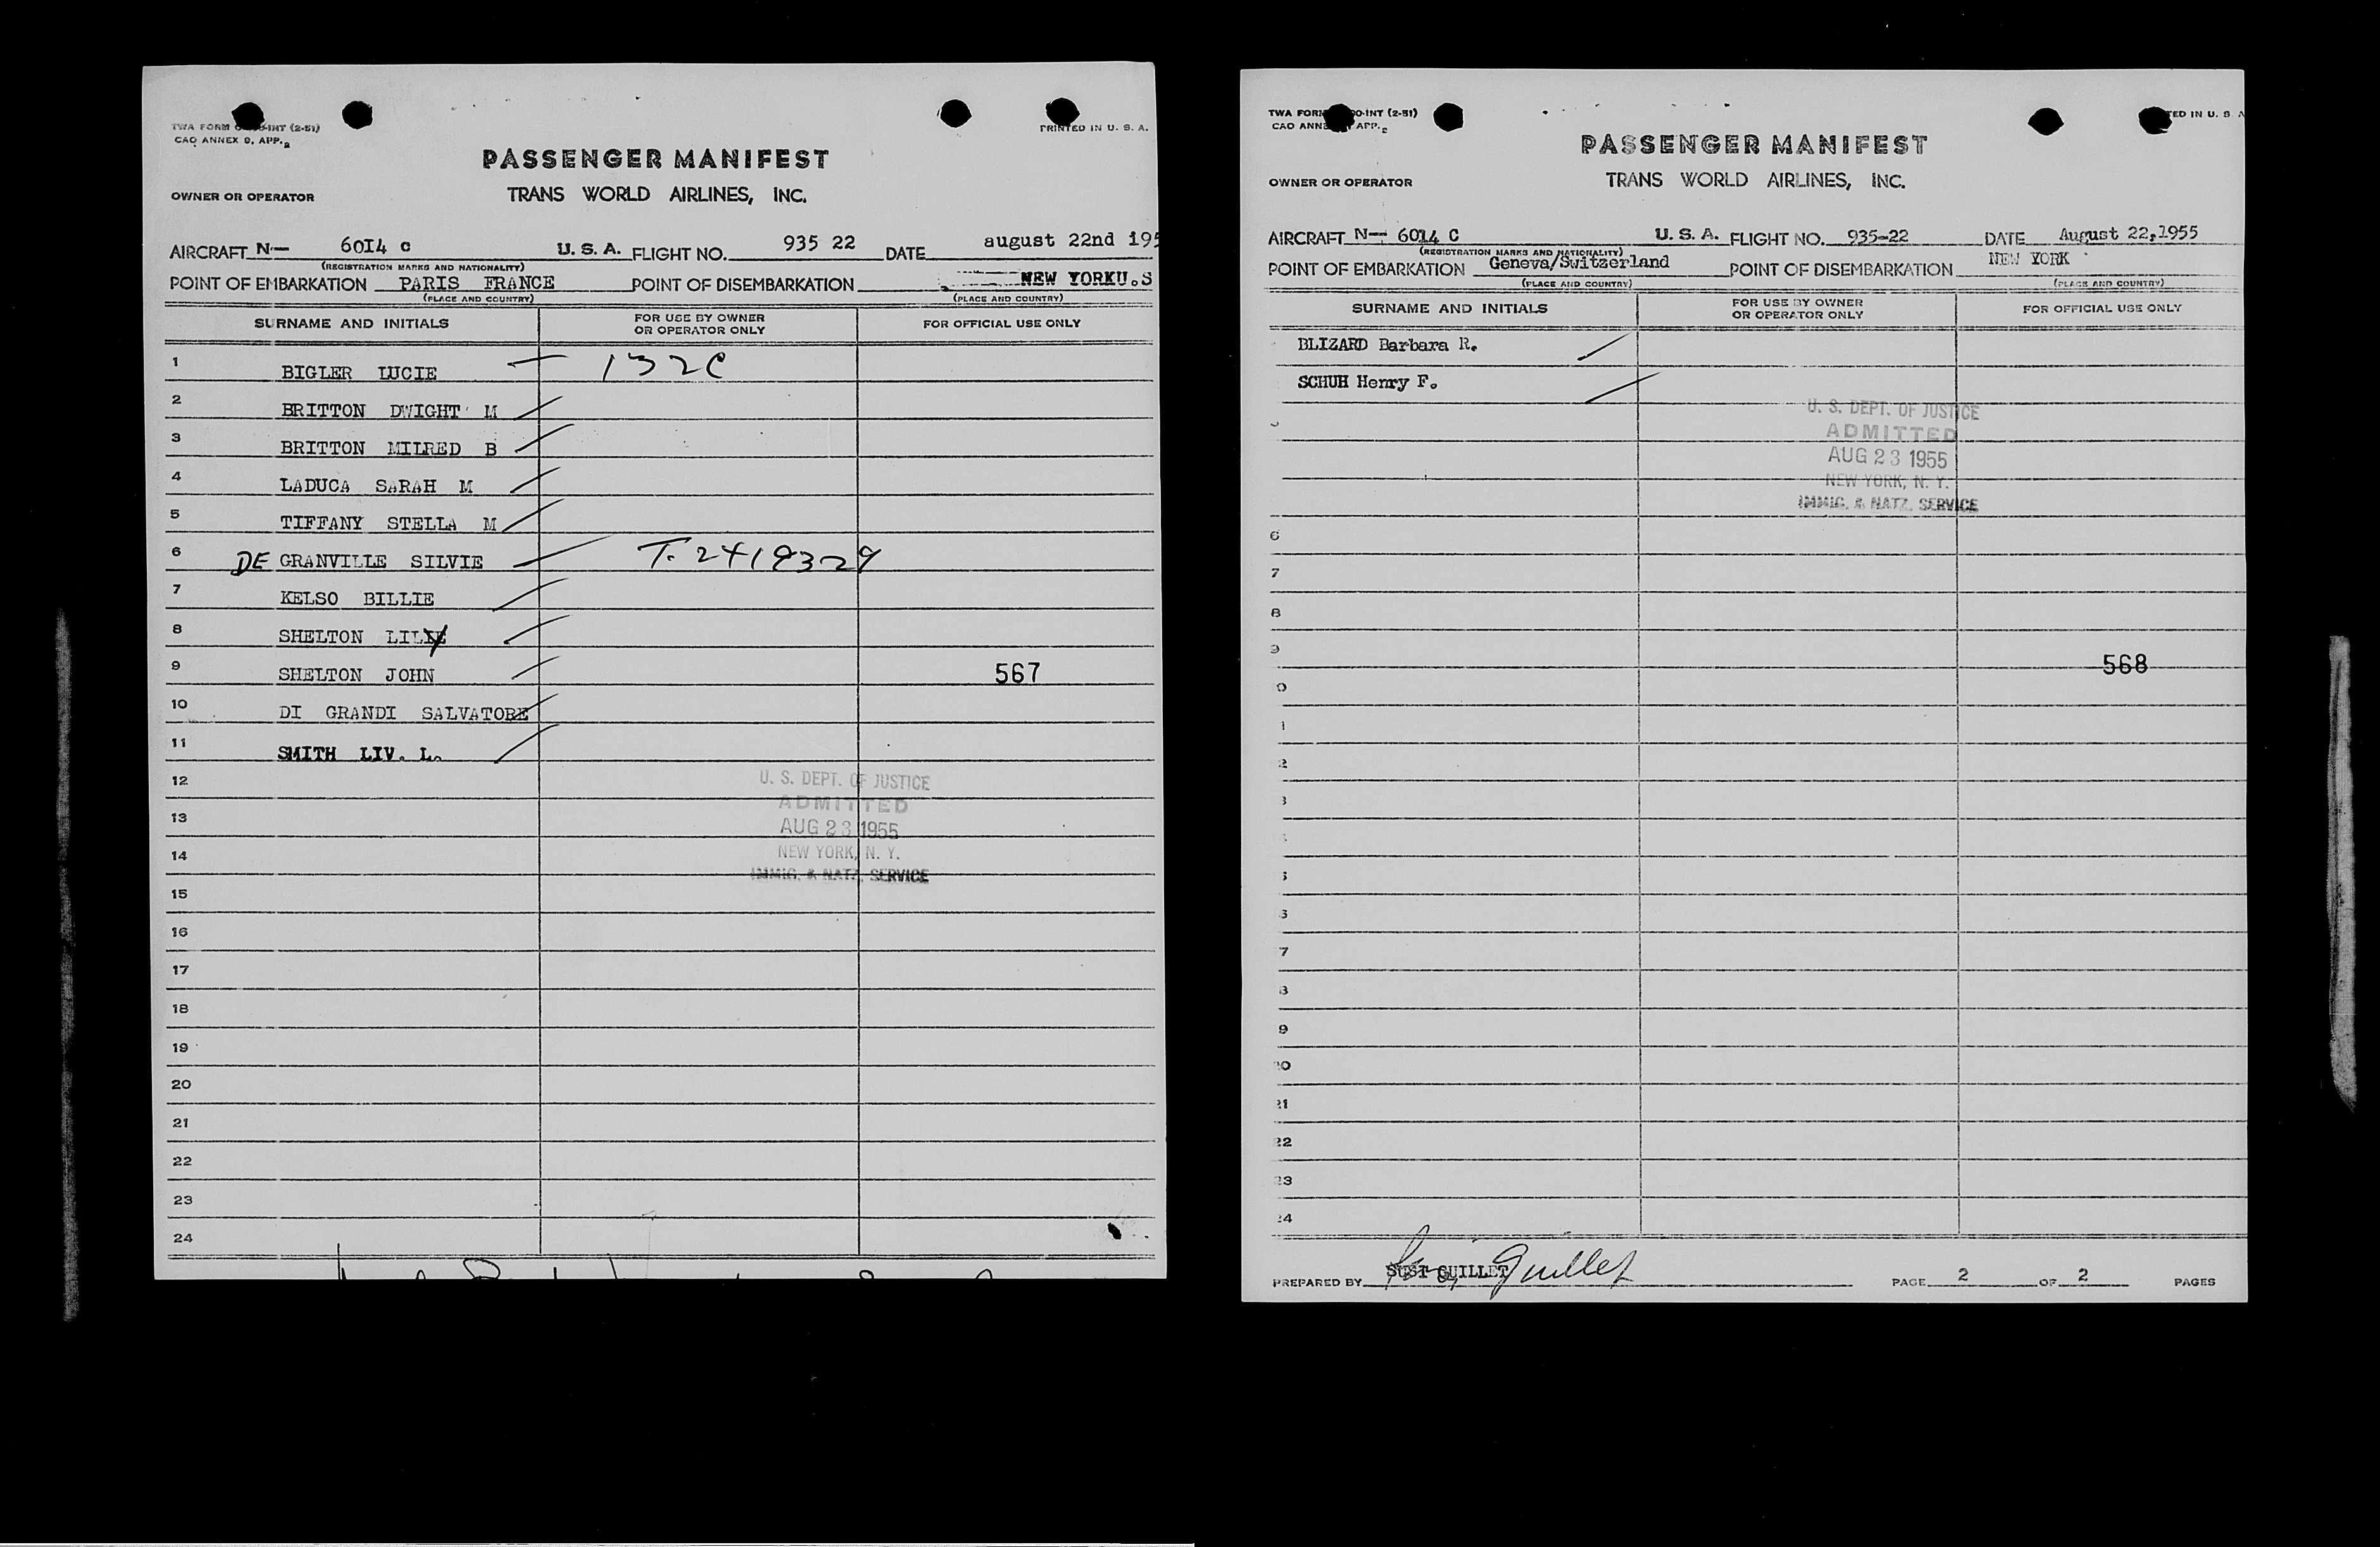 PRINTED IN U. S. A.
CAO ANNEX 9, APP.
PASSENGER MANIFEST
TRANS WORLD AIRLINES, INC.
OWNER OR OPERATOR
AIRCRAFT N— 60I4 C U. S. A. FLIGHT NO. 935 22 DATE august 22nd 195
(REGISTRATION MARKS AND NATIONALITY)
POINT OF EMBARKATION PARIS FRANCE POINT OF DISEMBARKATION NEW YORKU.S
(PLACE AND COUNTRY) (PLACE AND COUNTRY)
SURNAME AND INITIALS FOR USE BY OWNER OR OPERATOR ONLY FOR OFFICIAL USE ONLY
1 BIGLER LUCIE 132C
2 BRITTON DWIGHT M
3 BRITTON MILRED B
4 LADUCA SARAH M
5 TIFFANY STELLA M
6 DE GRANVILLE SILVIE T. 2419329
7 KELSO BILLIE
8 SHELTON LILY
9 SHELTON JOHN 567
10 DI GRANDI SALVATORE
11 SMITH LIV. L.
12
13
14
15
16
17
18
19
20
21
22
23
24
U. S. DEPT. OF JUSTICE
ADMITTED
AUG 23 1955
NEW YORK, N. Y.
IMMIG. & NATZ. SERVICE
TED IN U. S. A
PASSENGER MANIFEST
TRANS WORLD AIRLINES, INC.
OWNER OR OPERATOR
AIRCRAFT N— 6014 C U. S. A. FLIGHT NO. 935-22 DATE August 22,1955
(REGISTRATION MARKS AND NATIONALITY)
POINT OF EMBARKATION Geneva/Switzerland POINT OF DISEMBARKATION NEW YORK
(PLACE AND COUNTRY) (PLACE AND COUNTRY)
SURNAME AND INITIALS FOR USE BY OWNER OR OPERATOR ONLY FOR OFFICIAL USE ONLY
BLIZARD Barbara R.
SCHUH Henry F.
U. S. DEPT. OF JUSTICE
ADMITTED
AUG 23 1955
NEW YORK, N. Y.
IMMIG. & NATZ. SERVICE
6
7
8
9 568
0
1
2
3
7
9
21
22
23
24
PREPARED BY GUILLET Guillet PAGE 2 OF 2 PAGES